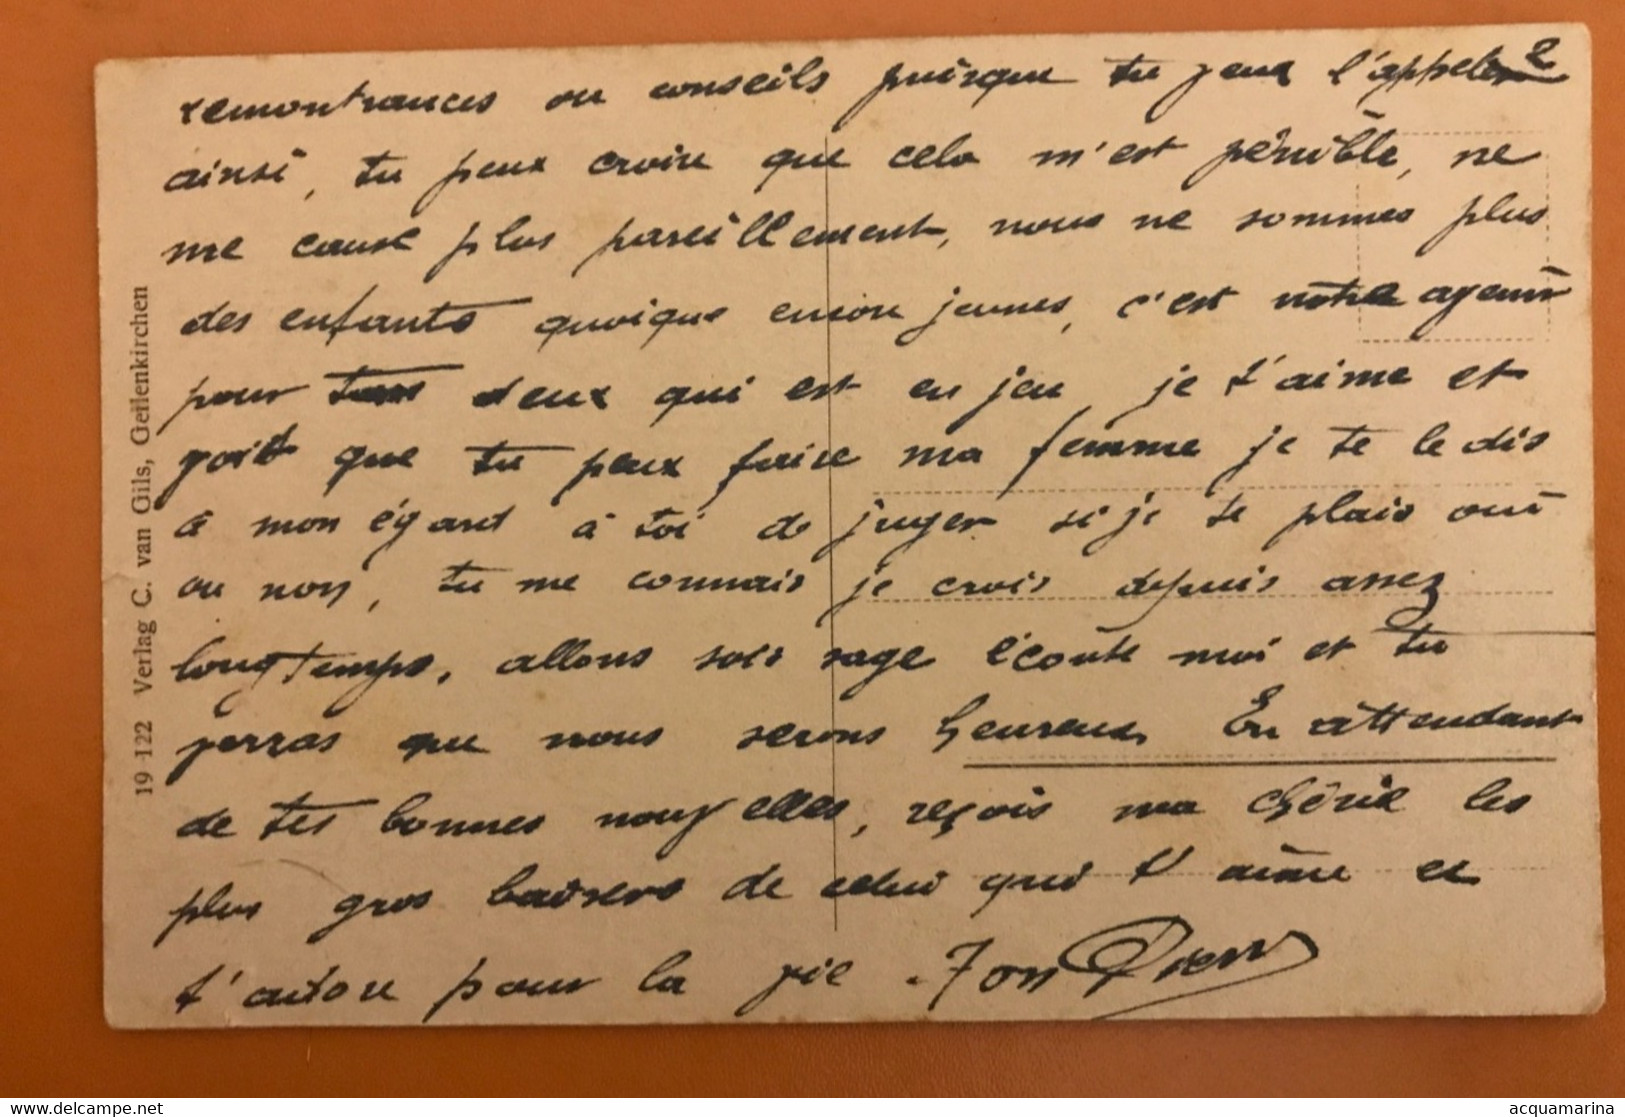 remontrances ou conseils puisque tu veux l'appeler
ainsi, tu peux croire que cela m'est pénible, ne
me cause plus pareillement, nous ne sommes plus
des enfants quoique encore jeunes, c'est notre avenir
pour tous deux qui est en jeu je t'aime et
voit que tu peux faire ma femme je te le dis
à mon égard à toi de juger si je te plais oui
ou non, tu me connais je crois depuis assez
longtemps, allons sois sage écoute moi et tu
verras que nous serons heureux. En attendant
de tes bonnes nouvelles, reçois ma chérie les
plus gros baisers de celui qui t'aime et
t'adore pour la vie. Ton
19 122 Verlag C. van Gils, Geilenkirchen
acquamarina